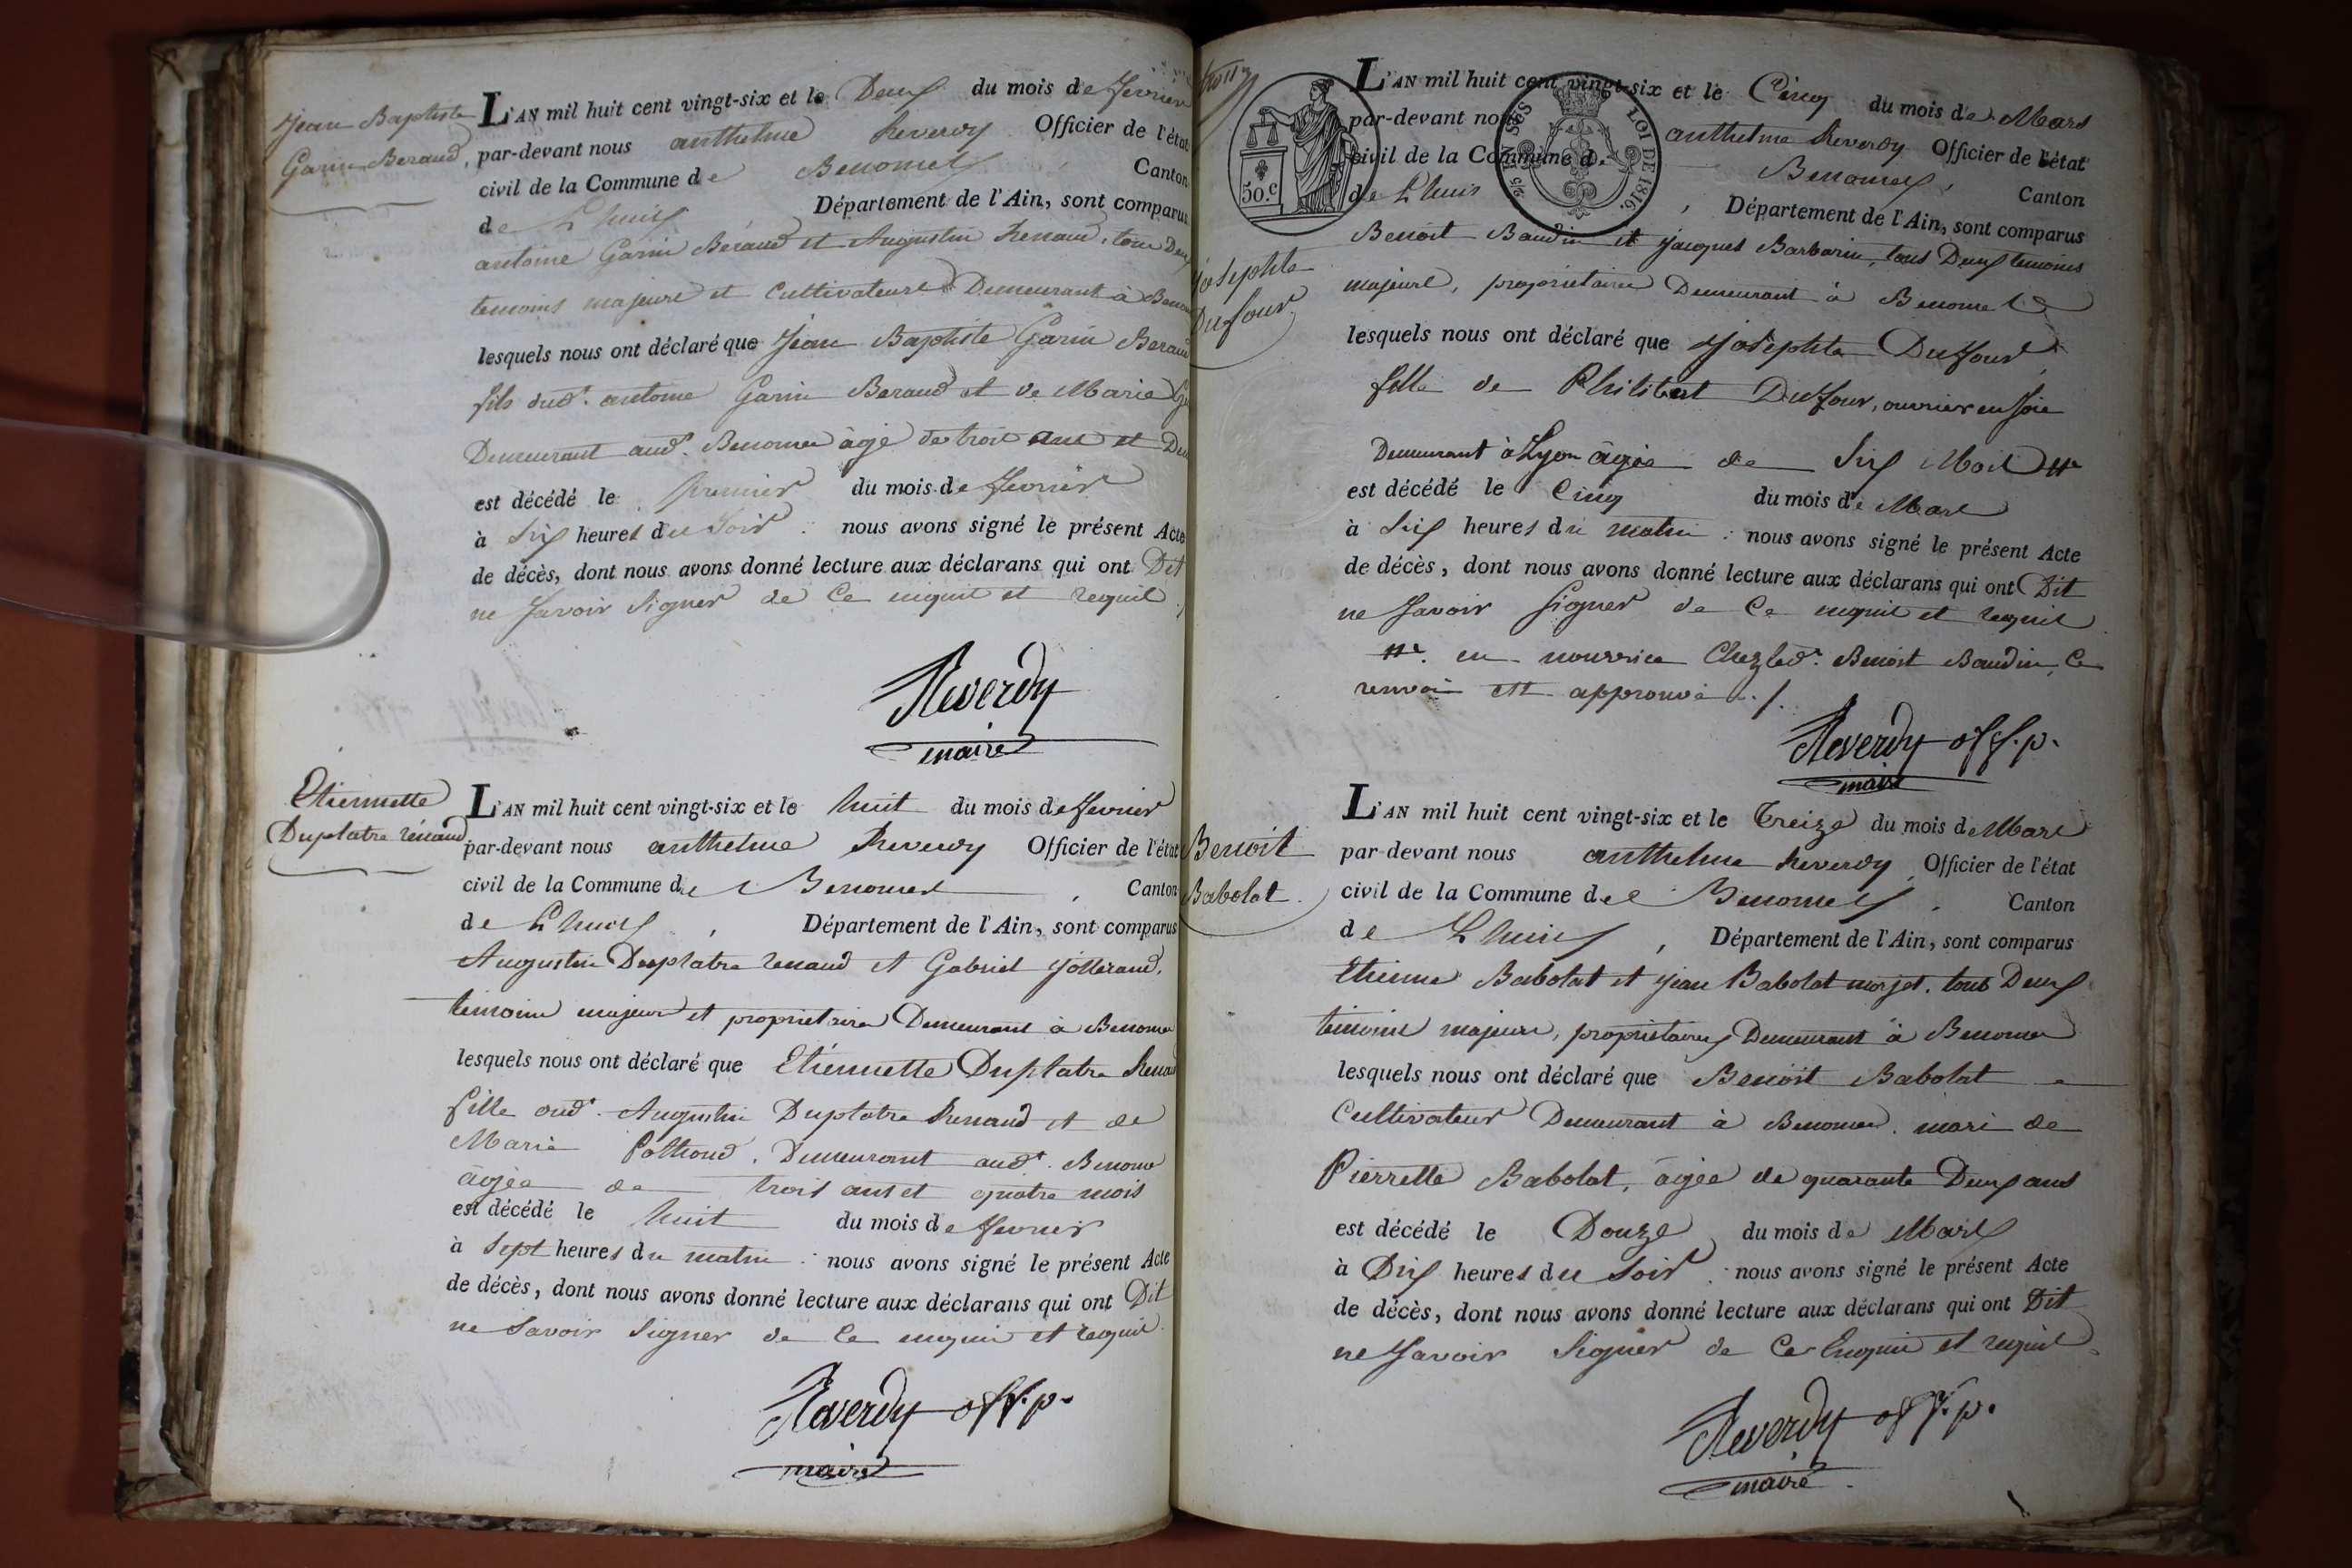 Jean Baptiste
Garin Beraud,
L'AN mil huit cent vingt-six et le Deux du mois de fevrier
par-devant nous anthelme Reverdy Officier de l'état
civil de la Commune de Benonces, Canton
de Lhuis Département de l'Ain, sont comparus
antoine Garin Béraud et Augustin Renaud, tous Deux
temoins majeurs et Cultivateurs Demeurant à
lesquels nous ont déclaré que Jean Baptiste Garin Beraud
fils dudt. antoine Garin Beraud et de Marie
Demeurant audt. Benonce âgé de trois ans et
est décédé le premier du mois de fevrier
à Six heures du Soir : nous avons signé le présent Acte
de décès, dont nous avons donné lecture aux déclarans qui ont Dit
ne Savoir Signer de Ce enquis et requis
Reverdy
maire
Etiennette
Duplatre rénaud
L'AN mil huit cent vingt-six et le huit du mois de fevrier
par-devant nous anthelme Reverdy Officier de l'état
civil de la Commune de Benonces, Canton
de Lhuis, Département de l'Ain, sont comparus
Augustin Duplatre renaud et Gabriel Jolleraud,
temoins majeurs et proprietaires Demeurant à Benonce
lesquels nous ont déclaré que Etiennette Duplatre Renaud
fille dudt. Augustin Duplatre Renaud et de
Marie Demeurant audt. Benonce
âgée de trois ans et quatre mois
est décédé le huit du mois de fevrier
à Sept heures du matin : nous avons signé le présent Acte
de décès, dont nous avons donné lecture aux déclarans qui ont Dit
ne Savoir Signer de Ce enquis et requis
Reverdy off. p.
maire
50.c
LOI DE 1816.
L'AN mil huit cent vingt-six et le Cinq du mois de Mars
par-devant nous anthelme Reverdy Officier de l'état
civil de la Commune de Benonces, Canton
de Lhuis, Département de l'Ain, sont comparus
Benoit Baudin et Jacques Barbarin, tous Deux temoins
majeurs, proprietaires Demeurant à Benonce
Josephte
Dufour
lesquels nous ont déclaré que Josephte Duffour
fille de Philibert Duffour, ouvrier en soie
Demeurant à Lyon âgée de Six Mois #
est décédé le Cinq du mois de Mars
à Six heures du matin : nous avons signé le présent Acte
de décès, dont nous avons donné lecture aux déclarans qui ont Dit
ne Savoir Signer de Ce enquis et requis
# en nourrice Chez ledt. Benoit Baudin, Ce
renvoi est approuvé ./.
Reverdy off. p.
maire
Benoit
Babolat
L'AN mil huit cent vingt-six et le Treize du mois de Mars
par-devant nous anthelme Reverdy, Officier de l'état
civil de la Commune de Benonces, Canton
de Lhuis, Département de l'Ain, sont comparus
Etienne Babolat et Jean Babolat morjet, tous Deux
temoins majeurs, proprietaires Demeurant à Benonce
lesquels nous ont déclaré que Benoit Babolat
Cultivateur Demeurant à Benonce, mari de
Pierrette Babolat, âgée de quarante Deux ans
est décédé le Douze du mois de Mars
à Dix heures du Soir : nous avons signé le présent Acte
de décès, dont nous avons donné lecture aux déclarans qui ont Dit
ne Savoir Signer de Ce Enquis et requis
Reverdy off. p.
maire